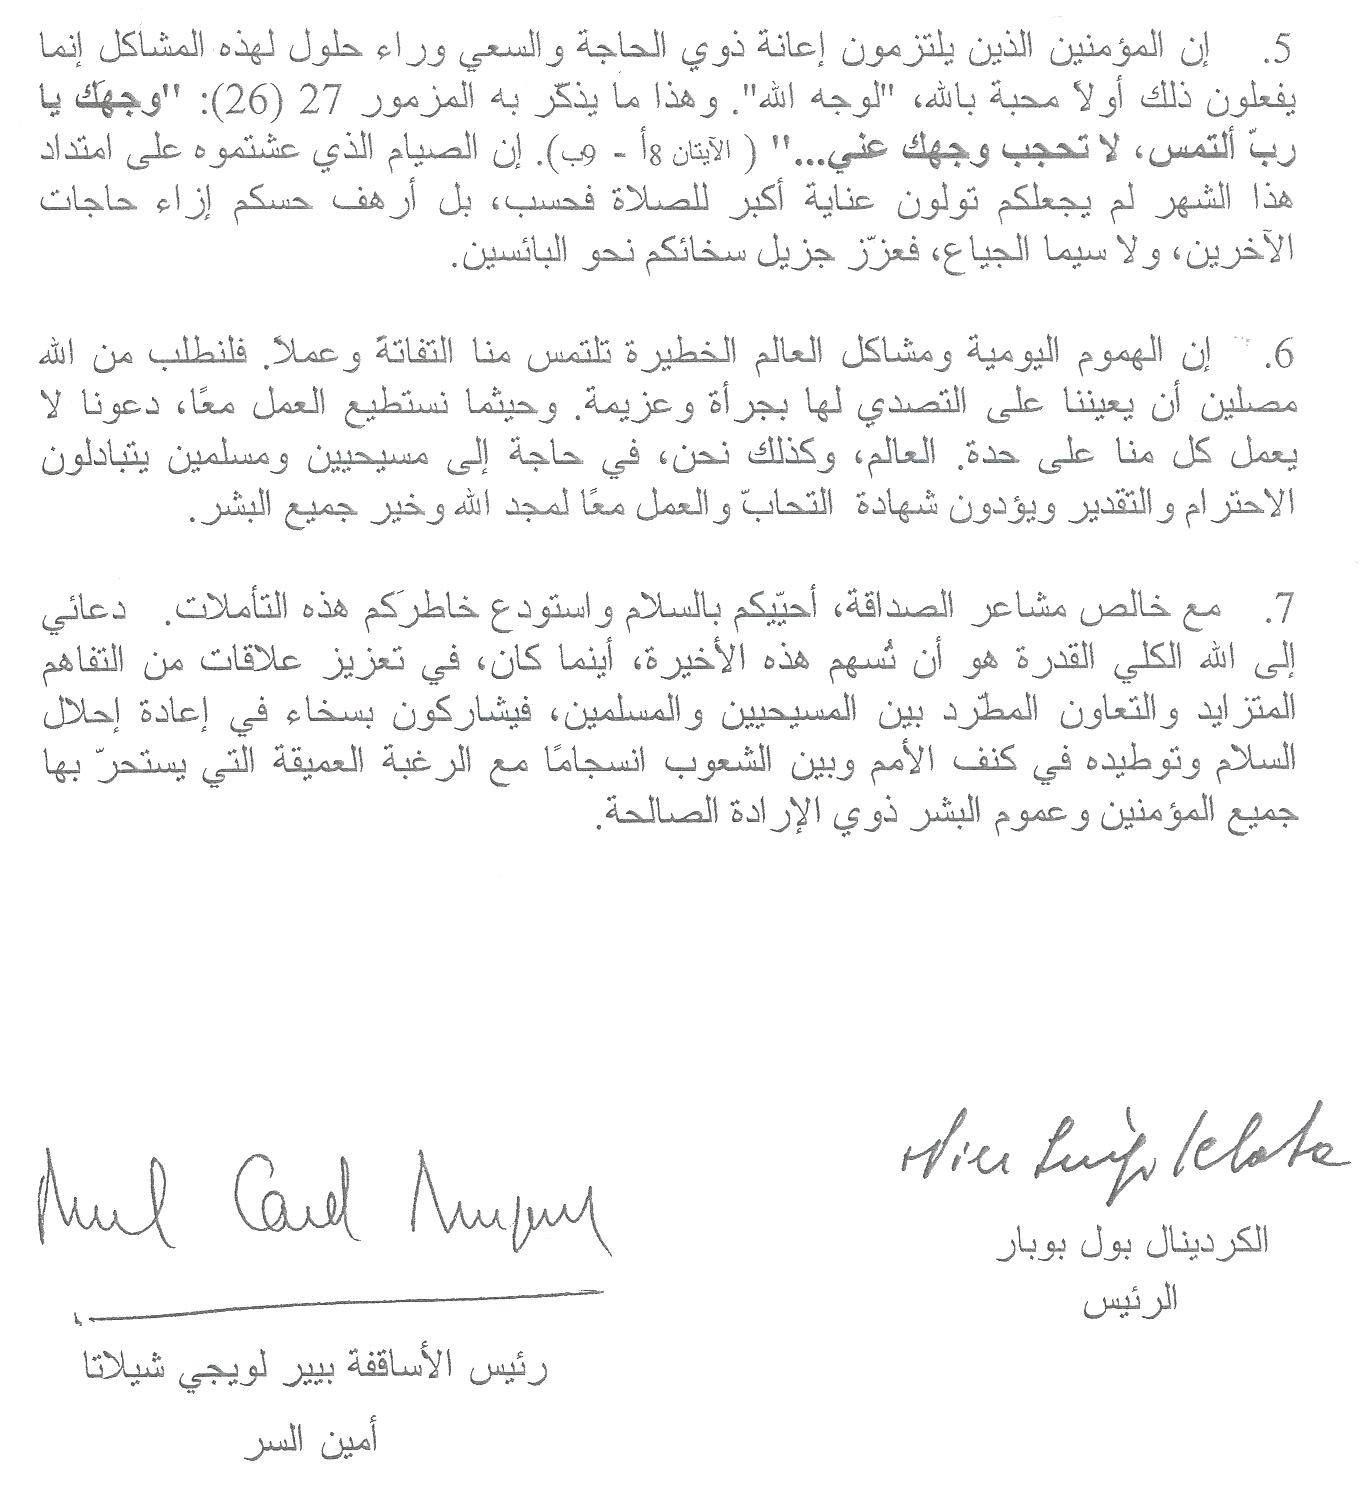 5. إن المؤمنين الذين يلتزمون إعانة ذوي الحاجة والسعي وراء حلول لهذه المشاكل إنما
يفعلون ذلك أولاً محبة بالله، "لوجه الله". وهذا ما يذكّر به المزمور 27 (26): "وجهَك يا
ربّ ألتمس، لا تحجب وجهك عني..." ( الآيتان 8أ - 9ب). إن الصيام الذي عشتموه على امتداد
هذا الشهر لم يجعلكم تولون عناية أكبر للصلاة فحسب، بل أرهف حسكم إزاء حاجات
الآخرين، ولا سيما الجياع، فعزّز جزيل سخائكم نحو البائسين.
6. إن الهموم اليومية ومشاكل العالم الخطيرة تلتمس منا التفاتةً وعملاً. فلنطلب من الله
مصلين أن يعيننا على التصدي لها بجرأة وعزيمة. وحيثما نستطيع العمل معًا، دعونا لا
يعمل كل منا على حدة. العالم، وكذلك نحن، في حاجة إلى مسيحيين ومسلمين يتبادلون
الاحترام والتقدير ويؤدون شهادة التحابّ والعمل معًا لمجد الله وخير جميع البشر.
7. مع خالص مشاعر الصداقة، أحيّيكم بالسلام واستودع خاطرَكم هذه التأملات. دعائي
إلى الله الكلي القدرة هو أن تُسهم هذه الأخيرة، أينما كان، في تعزيز علاقات من التفاهم
المتزايد والتعاون المطّرد بين المسيحيين والمسلمين، فيشاركون بسخاء في إعادة إحلال
السلام وتوطيده في كنف الأمم وبين الشعوب انسجامًا مع الرغبة العميقة التي يستحرّ بها
جميع المؤمنين وعموم البشر ذوي الإرادة الصالحة.
الكردينال بول بوبار
الرئيس
رئيس الأساقفة بيير لويجي شيلاتا
أمين السر